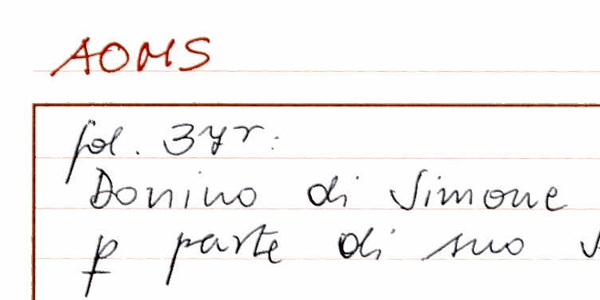 AOMS
fol. 37r:
Donino di Simone
ꝑ parte di suo